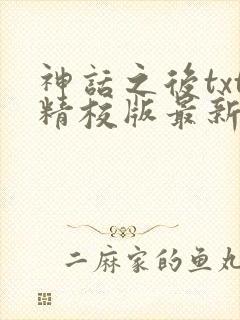 神話之後txt
精校版最新
二麻家的鱼丸